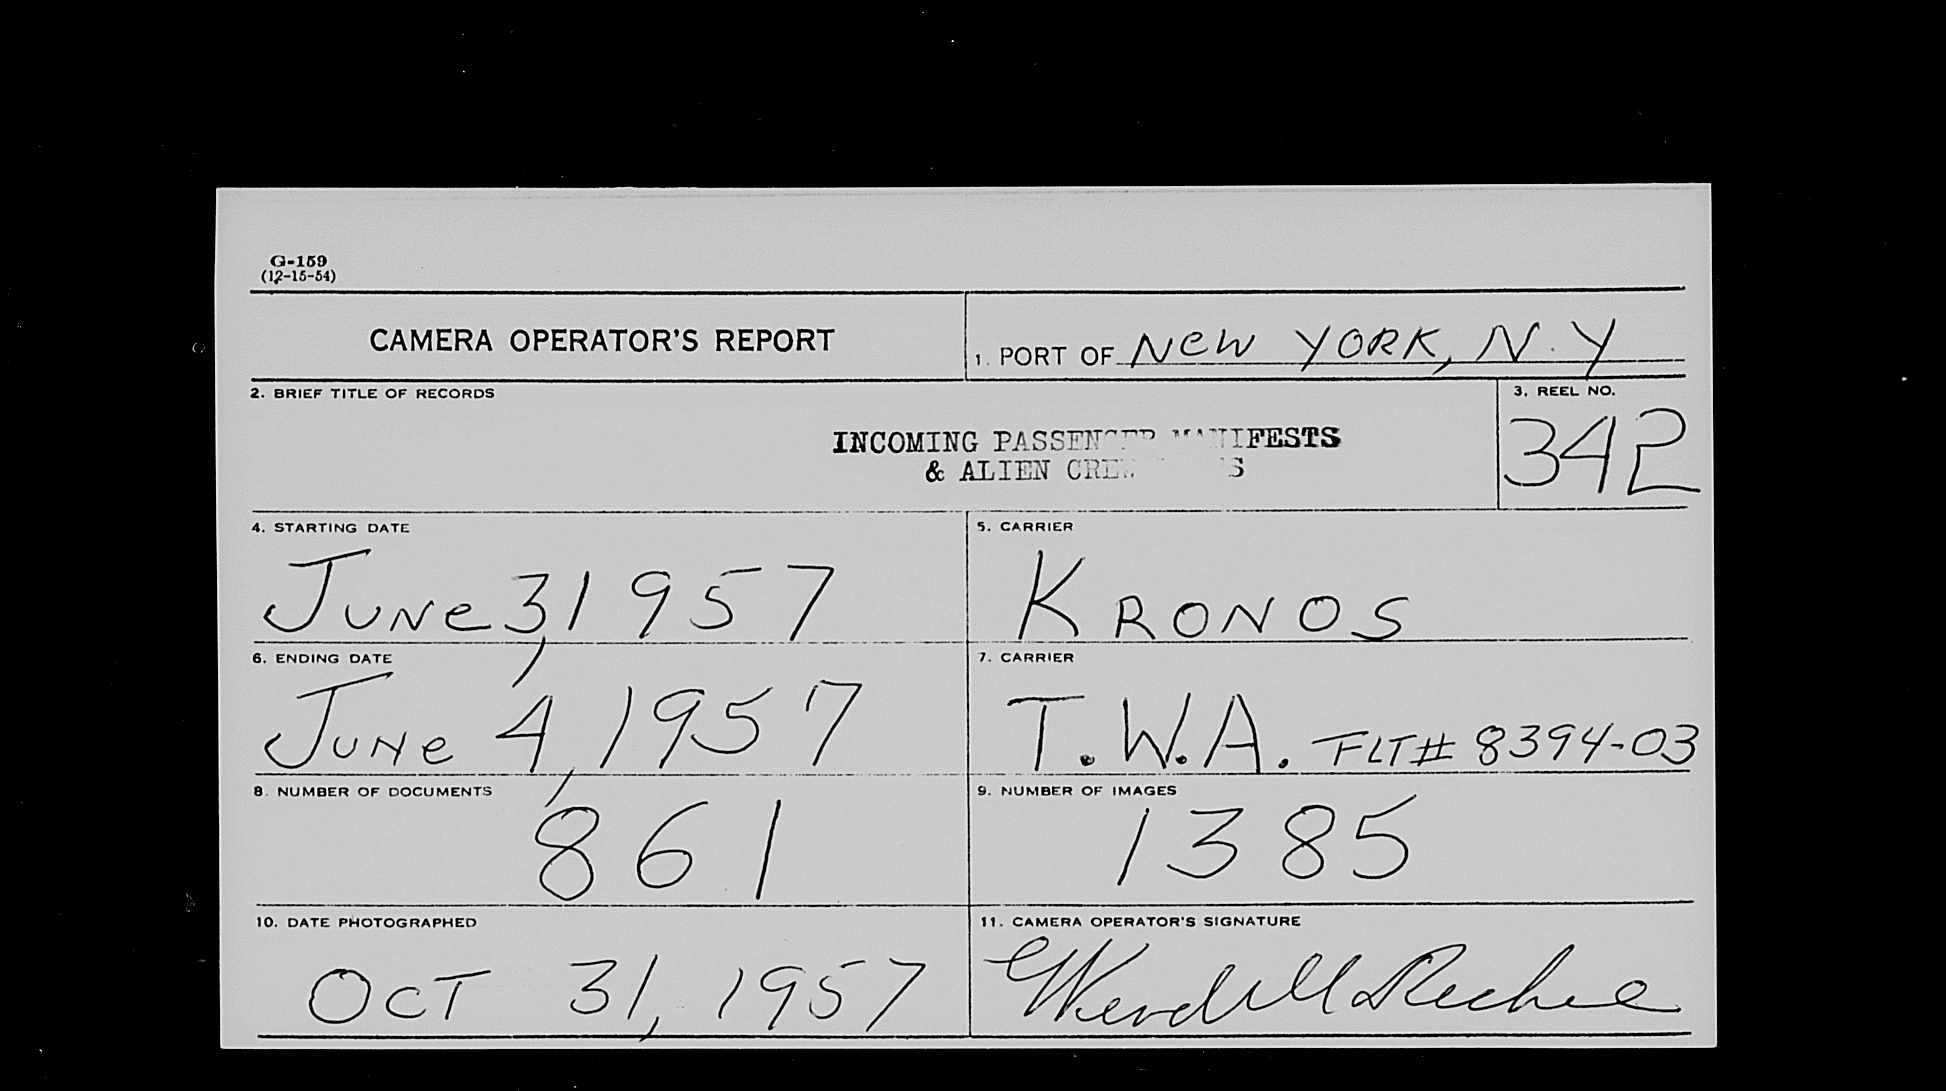 G-159
(12-15-54)
CAMERA OPERATOR'S REPORT
1. PORT OF New YORK, N.Y
2. BRIEF TITLE OF RECORDS
3. REEL NO.
INCOMING PASSENGER MANIFESTS
& ALIEN
342
4. STARTING DATE
5. CARRIER
June 3, 1957
KRONOS
6. ENDING DATE
7. CARRIER
June 4, 1957
T.W.A. FLT# 8394-03
8. NUMBER OF DOCUMENTS
9. NUMBER OF IMAGES
861
1385
10. DATE PHOTOGRAPHED
11. CAMERA OPERATOR'S SIGNATURE
OCT 31, 1957
Wendell